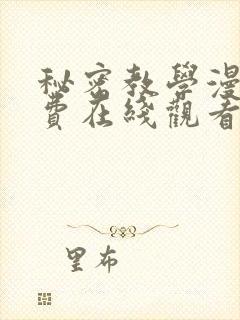 秘密教學漫
費在綫觀看
里布